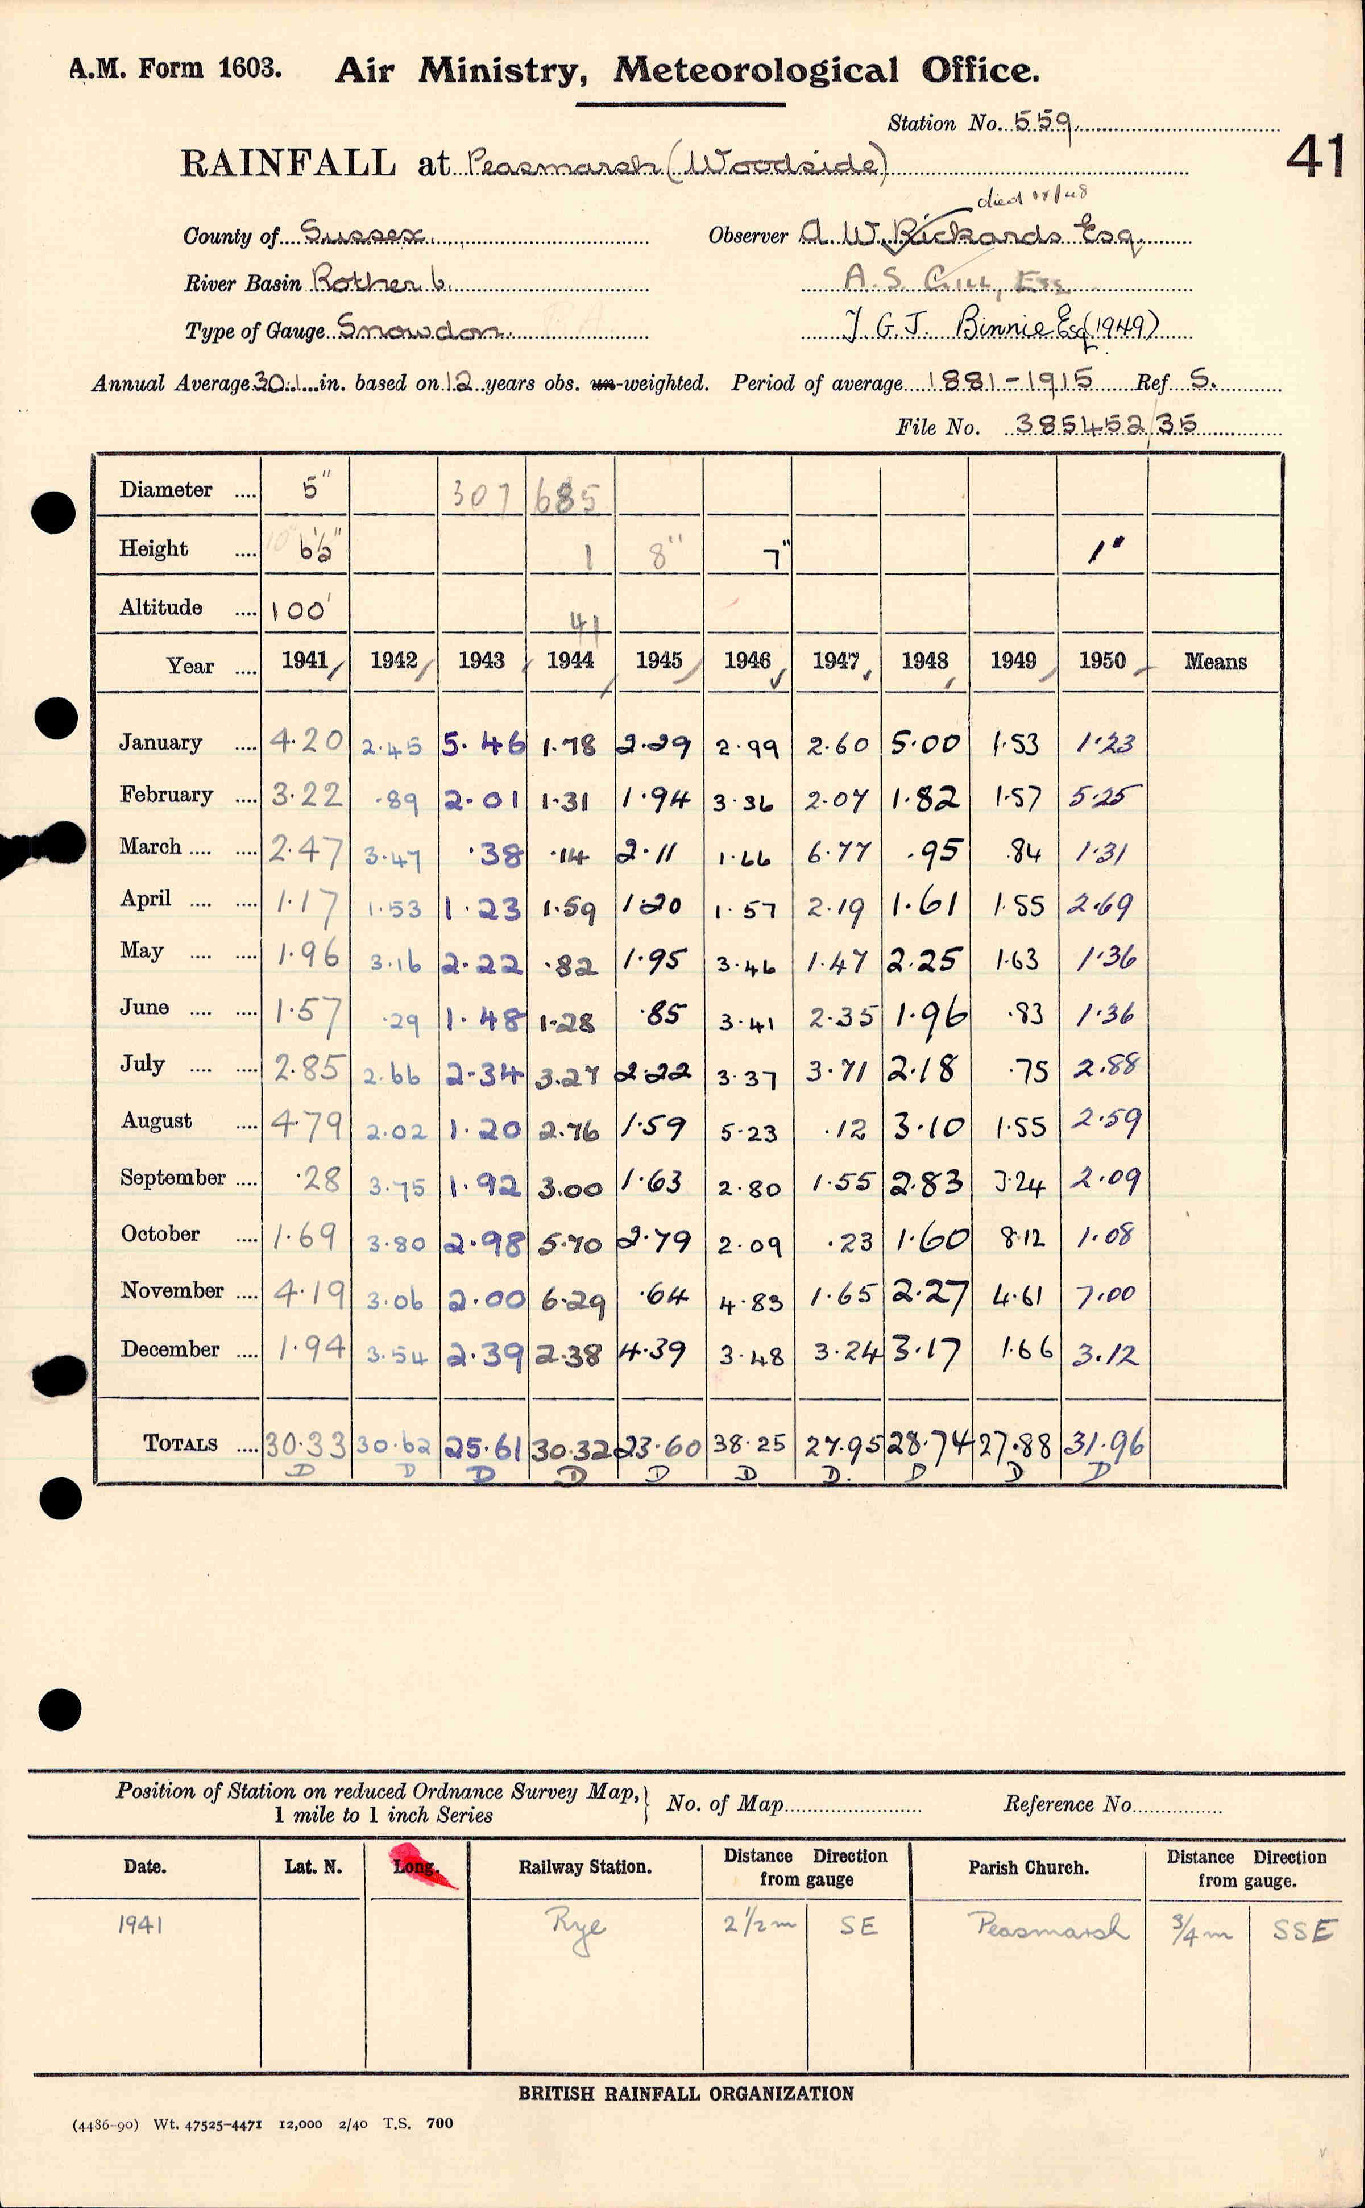 A.M. Form 1603. Air Ministry, Meteorological Office.
Station No. 559
41
RAINFALL at Peasmarsh (Woodside)
died
County of Sussex Observer A. W. Rickards Esq.
River Basin Rother 6. A. S. Gill, Esq
Type of Gauge Snowdon. T. G. J. Binnie Esq (1949)
Annual Average 30.1 in. based on 12 years obs. un-weighted. Period of average 1881-1915 Ref S.
File No. 385452/35
Diameter .... 5" 307 685
Height .... 6½" 1 8" 7" 1"
Altitude .... 100' 41
Year .... 1941 1942 1943 1944 1945 1946 1947 1948 1949 1950 Means
January .... 4.20 2.45 5.46 1.78 2.29 2.99 2.60 5.00 1.53 1.23
February .... 3.22 .89 2.01 1.31 1.94 3.36 2.07 1.82 1.57 5.25
March .... .... 2.47 3.47 .38 .14 2.11 1.66 6.77 .95 .84 1.31
April .... .... 1.17 1.53 1.23 1.59 1.20 1.57 2.19 1.61 1.55 2.69
May .... .... 1.96 3.16 2.22 .82 1.95 3.46 1.47 2.25 1.63 1.36
June .... .... 1.57 .29 1.48 1.28 .85 3.41 2.35 1.96 .83 1.36
July .... .... 2.85 2.66 2.34 3.27 2.22 3.37 3.71 2.18 .75 2.88
August .... 4.79 2.02 1.20 2.76 1.59 5.23 .12 3.10 1.55 2.59
September .... .28 3.75 1.92 3.00 1.63 2.80 1.55 2.83 3.24 2.09
October .... 1.69 3.80 2.98 5.70 2.79 2.09 .23 1.60 8.12 1.08
November .... 4.19 3.06 2.00 6.29 .64 4.83 1.65 2.27 4.61 7.00
December .... 1.94 3.54 2.39 2.38 4.39 3.48 3.24 3.17 1.66 3.12
TOTALS .... 30.33 30.62 25.61 30.32 23.60 38.25 27.95 28.74 27.88 31.96
D D D D D D D. D D D
Position of Station on reduced Ordnance Survey Map,} No. of Map Reference No
1 mile to 1 inch Series
Date. Lat. N. Long. Railway Station. Distance Direction from gauge Parish Church. Distance Direction from gauge.
1941 Rye 2 1/2 m SE Peasmarsh 3/4 m SSE
BRITISH RAINFALL ORGANIZATION
(4486-90) Wt. 47525-4471 12,000 2/40 T.S. 700